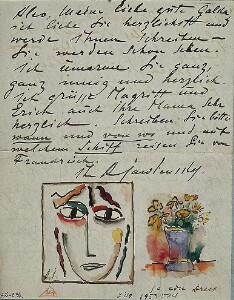 Also, meine liebe gute Galka
ich liebe Sie herzlichst und
werde Ihnen schreiben –
Sie werden schon sehen.
Ich umarme Sie ganz,
ganz innig und herzlich
Ich grüsse Magrott und
Erich auch Ihre Mama sehr
herzlich Schreiben Sie bitte
wann und von wo und mit
welchem Schiff reisen Sie von
Frankreich.
Ihr A. Jawlensky